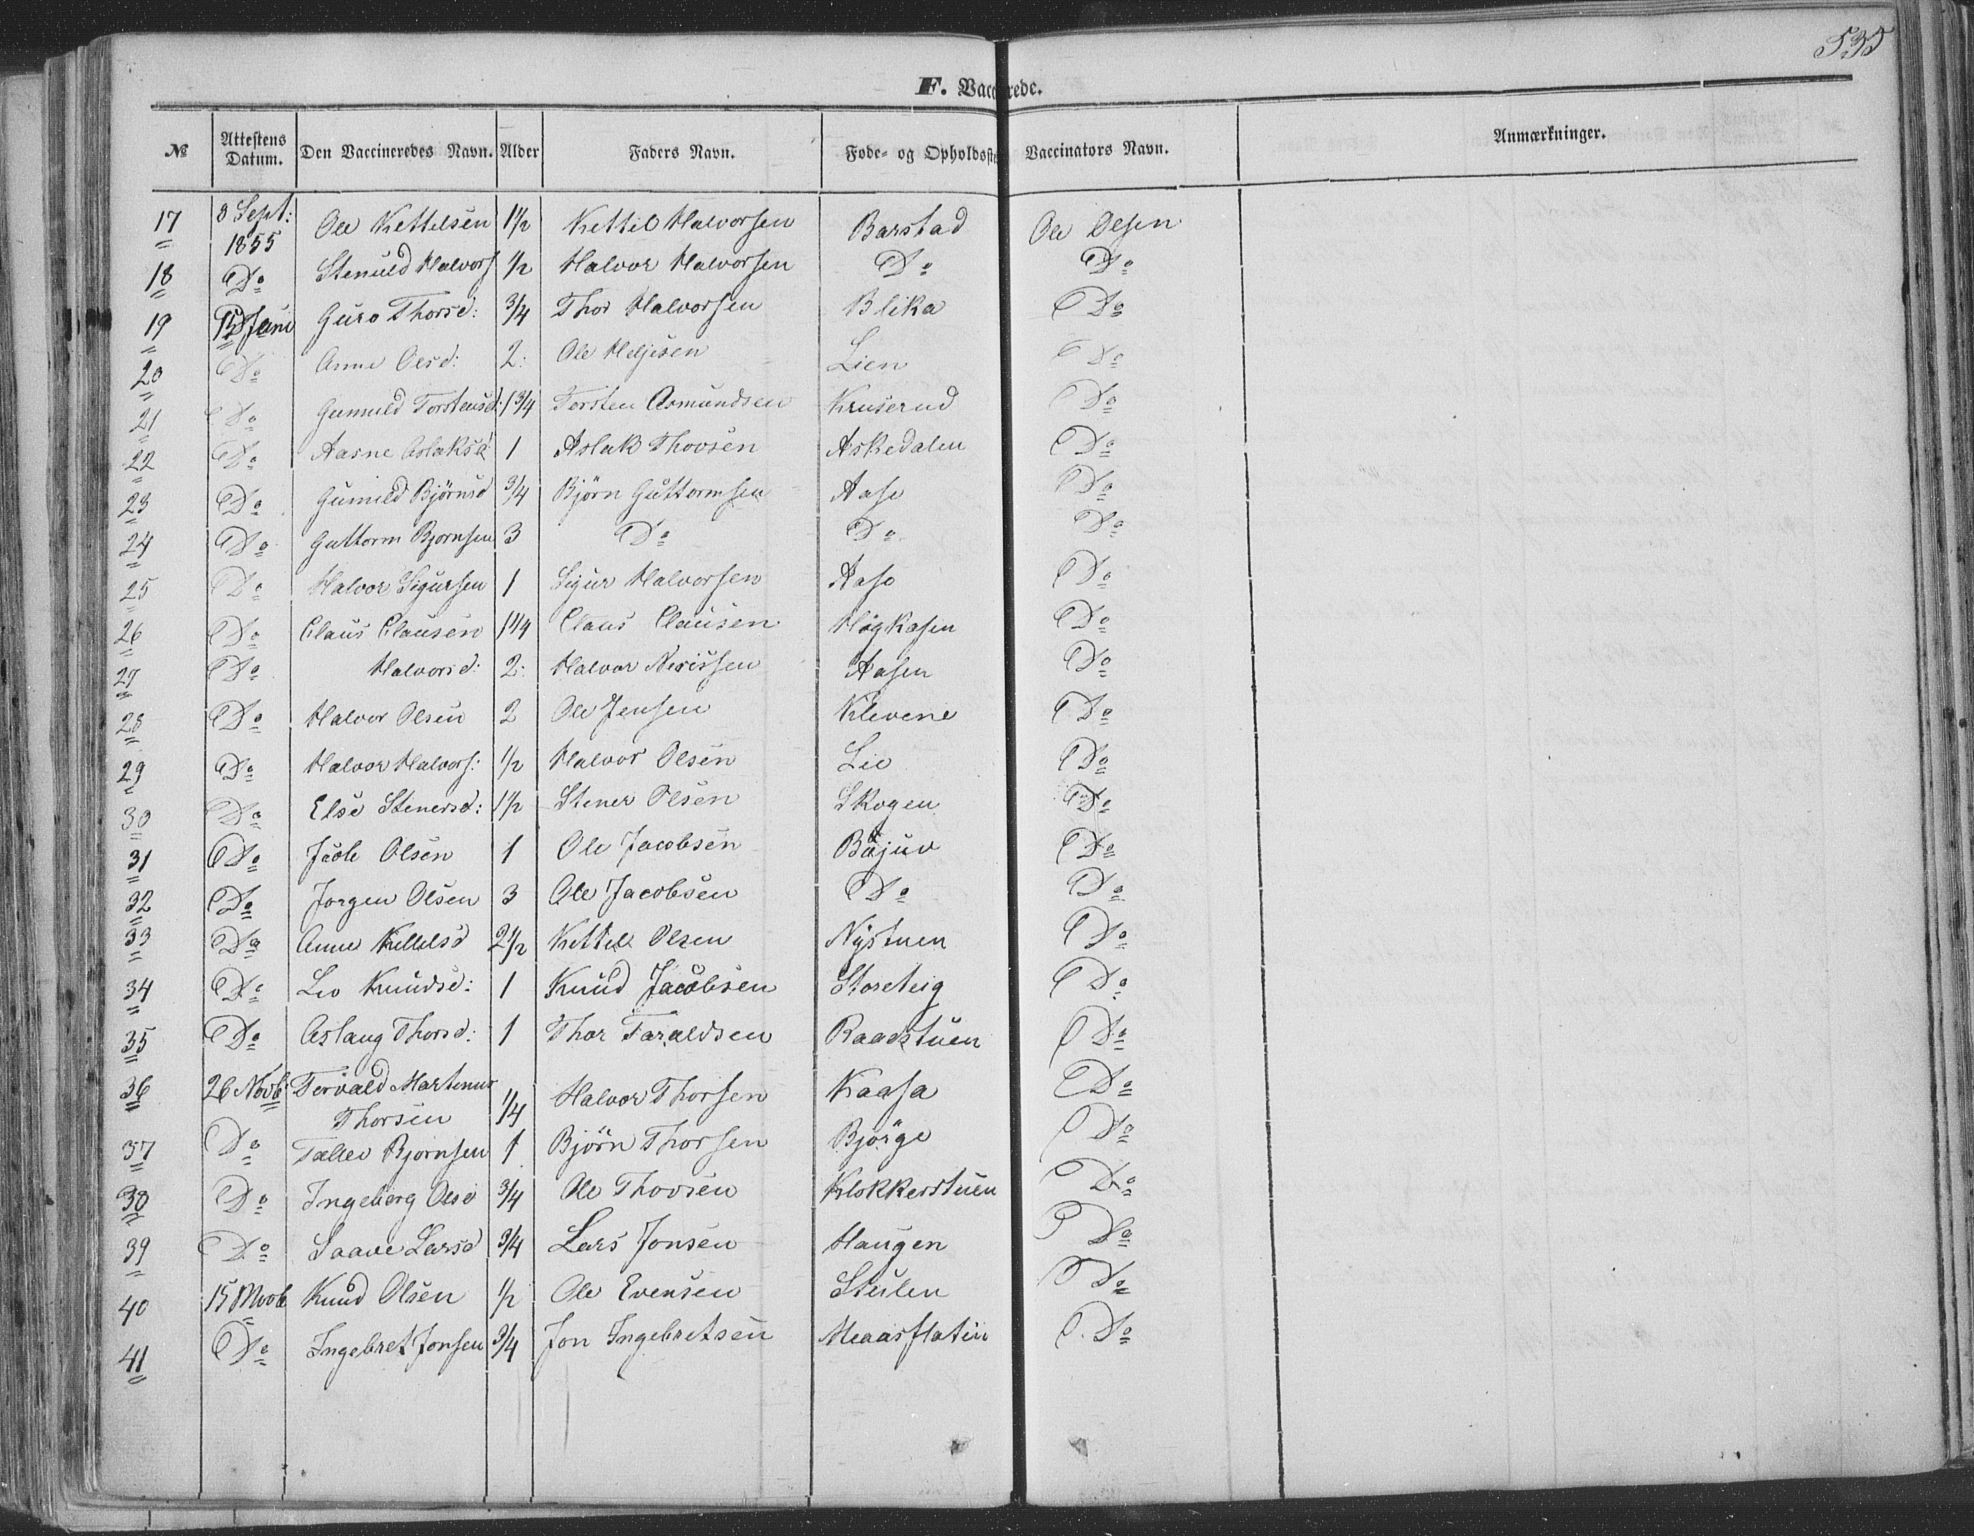 535
F. Vaccinerede.
№ Attestens Datum. Den Vaccineredes Navn. Alder Faders Navn. Føde- og Opholdsste Vaccinators Navn. Anmærkninger.
17 3 Sept: 1855 Ole Kettelsen 1½ Kettil Halvorsen Barstad Ole Olsen
18 Do Halvors ½ Halvor Halvorsen Do Do
19 15 Juni Guro Thorsd: ¾ Thor Halvorsen Blika Do
20 Do Anne Olsd: 2: Ole Heljesen Lien Do
21 Do Gunnild Torstensd: 1¾ Torsten Asmundsen Kruserud Do
22 Do Aasne Aslaksd 1 Aslak Thovsen Askedalen Do
23 Do Gunnild Bjørnsd ¾ Bjørn Guttormsen Aase Do
24 Do Guttorm Bjornsen 3 Do Do Do
25 Do Halvor Sigursen 1 Sigur Halvorsen Aase Do
26 Do Claus Clausen 1¼ Claus Clausen Høgkasen Do
27 Do Halvorsd: 2: Halvor Aasen Do
28 Do Halvor Olsen 2 Ole Jensen Klevene Do
29 Do Halvor Halvors: ½ Halvor Olsen Lie Do
30 Do Else Stenersd: 1½ Stener Olsen Skogen Do
31 Do Olsen 1 Ole Jacobsen Bøjuv Do
32 Do Jorgen Olsen 3 Ole Jacobsen Do Do
33 Do Anne Kettelsd 2½ Kettil Olsen Nystuen Do
34 Do Liv Knudsd: 1 Knud Jacobsen Storeteig Do
35 Do Aslaug Thorsd: 1 Thor Taraldsen Raadstuen Do
36 26 Novb Torvald Martinus Thorsen ¼ Halvor Thorsen Kaasa Do
37 Do Tallev Bjornsen 1 Bjørn Thorsen Bjørge Do
38 Do Ingeborg Olsd ¾ Ole Thovsen Klokkerstuen Do
39 Do Saave Larsd ¾ Lars Jonsen Haugen Do
40 15 Knud Olsen ½ Ole Evensen Stulen Do
41 Do Ingebret Jonsen ¾ Jon Ingebretsen Meaasflatin Do